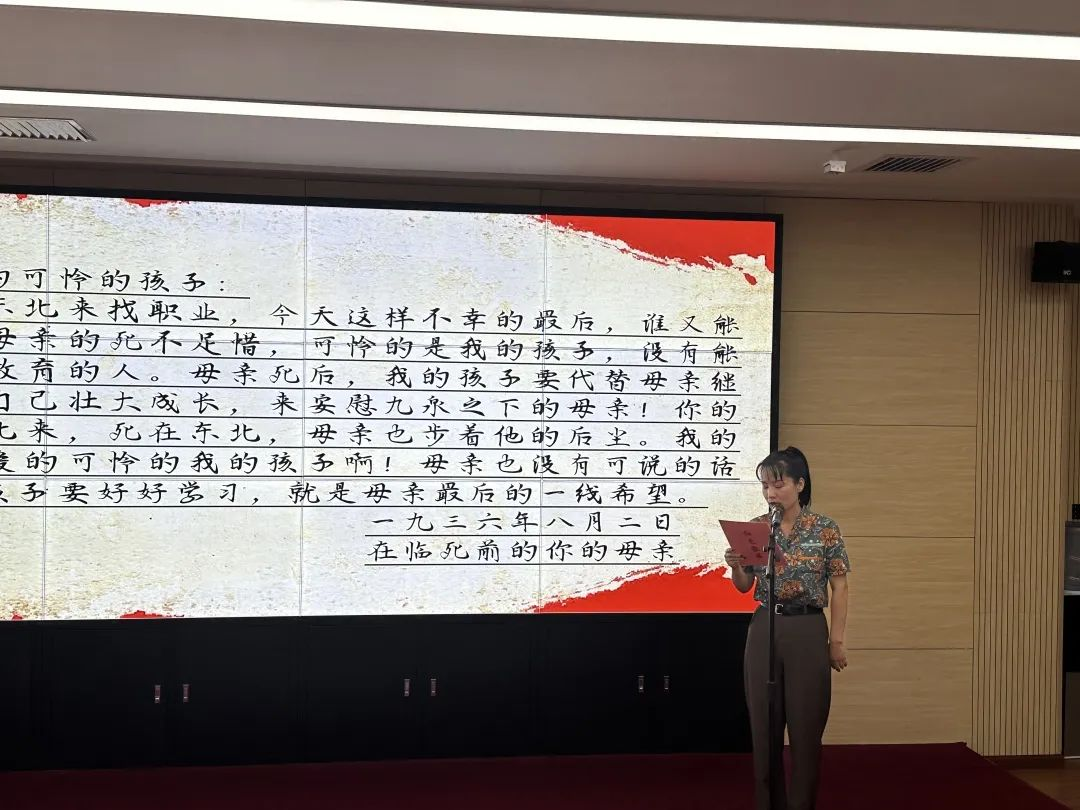 可怜的孩子：
北来找职业，今天这样不幸的最后，谁又能
母亲的死不足惜，可怜的是我的孩子，没有能
教育的人。母亲死后，我的孩子要代替母亲继
自己壮大成长，来安慰九泉之下的母亲！你的
北来，死在东北，母亲也步着他的后尘。我的
爱的可怜的我的孩子啊！母亲也没有可说的话
孩子要好好学习，就是母亲最后的一线希望。
一九三六年八月二日
在临死前的你的母亲